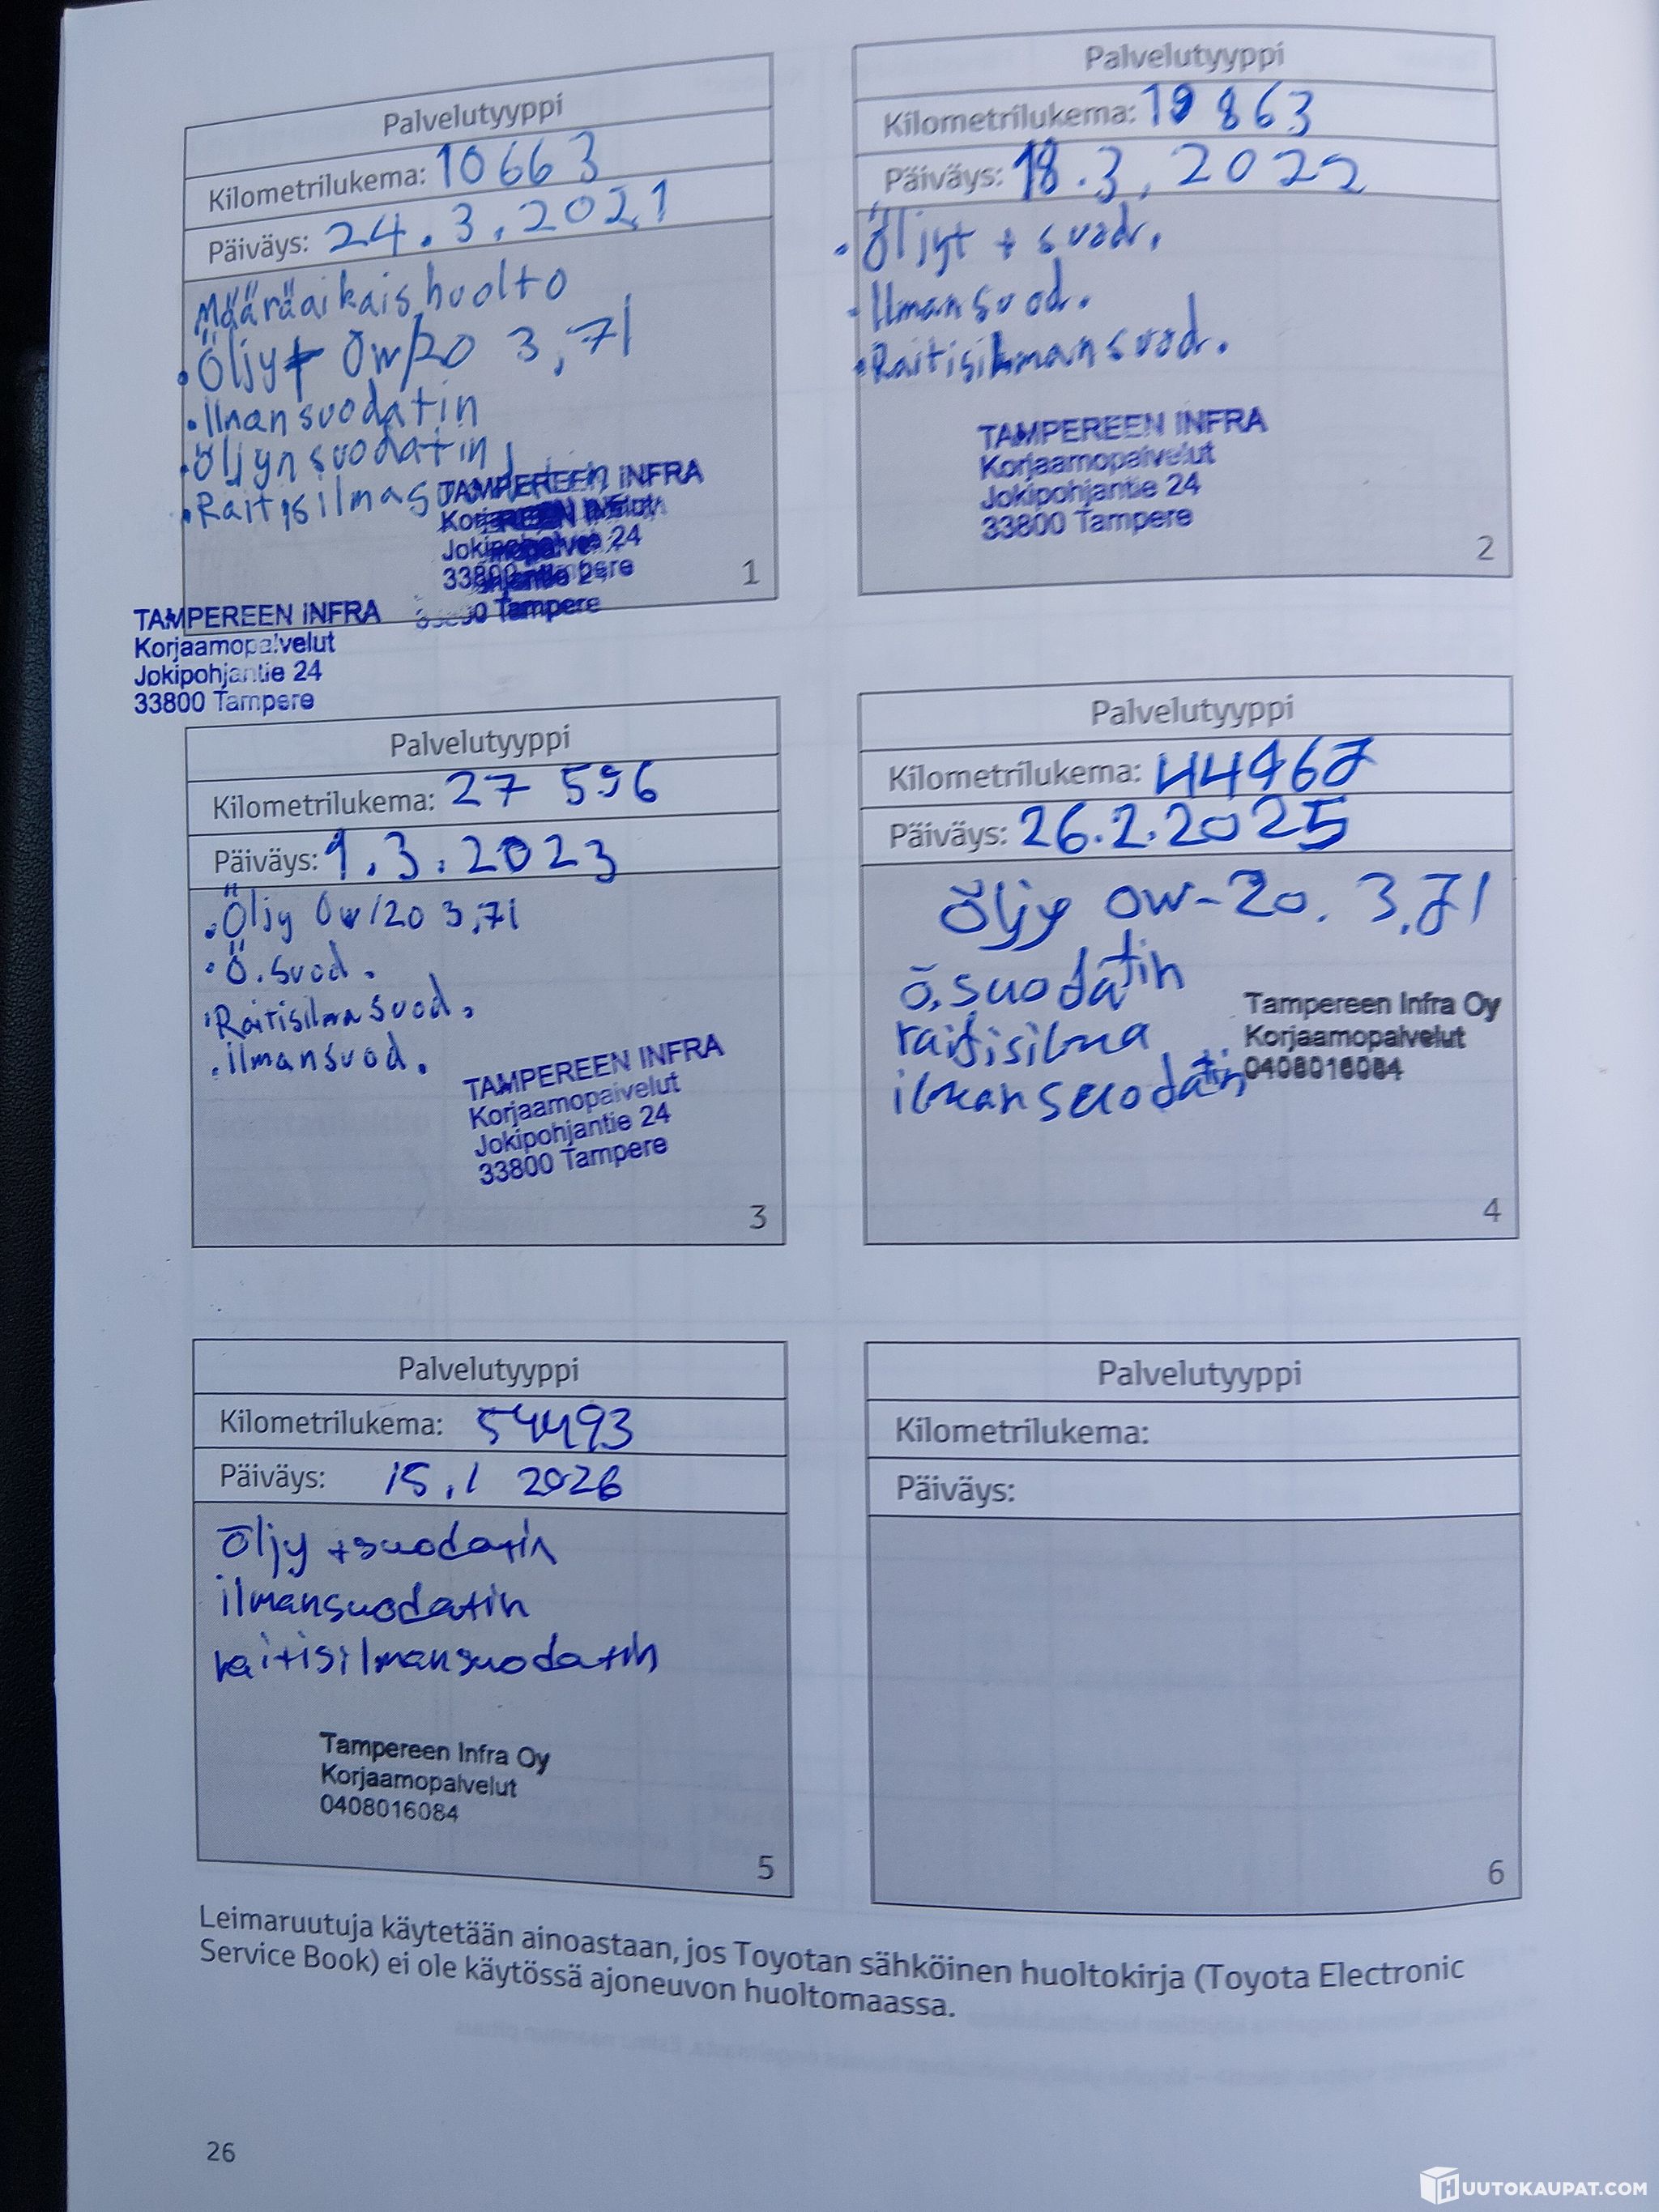 Palvelutyyppi
Kilometrilukema: 10663
Päiväys: 24.3.2021
Määräaikaishuolto
• Öljyt 0w/20 3,7l
• Ilmansuodatin
• Öljynsuodatin
• Raitisilmasuodatin
TAMPEREEN INFRA
Jokipohjantie 24
33800 Tampere
1
TAMPEREEN INFRA
Korjaamopalvelut
Jokipohjantie 24
33800 Tampere
Palvelutyyppi
Kilometrilukema: 19 863
Päiväys: 18.3.2022
• Öljyt + suod.
- Ilmansuod.
• Raitisilmansuod.
TAMPEREEN INFRA
Korjaamopalvelut
Jokipohjantie 24
33800 Tampere
2
Palvelutyyppi
Kilometrilukema: 27 596
Päiväys: 1.3.2023
• Öljy 0w/20 3,7l
• Ö.suod.
• Raitisilmasuod.
• ilmansuod.
TAMPEREEN INFRA
Korjaamopalvelut
Jokipohjantie 24
33800 Tampere
3
Palvelutyyppi
Kilometrilukema: 44967
Päiväys: 26.2.2025
Öljy 0w-20. 3,7l
ö.suodatin
raitisilma
ilmansuodatin
Tampereen Infra Oy
Korjaamopalvelut
0408016084
4
Palvelutyyppi
Kilometrilukema: 54493
Päiväys: 15.1 2026
öljy +suodatin
ilmansuodatin
raitisilmansuodatin
Tampereen Infra Oy
Korjaamopalvelut
0408016084
5
Palvelutyyppi
Kilometrilukema:
Päiväys:
6
Leimaruutuja käytetään ainoastaan, jos Toyotan sähköinen huoltokirja (Toyota Electronic
Service Book) ei ole käytössä ajoneuvon huoltomaassa.
26
HUUTOKAUPAT.COM